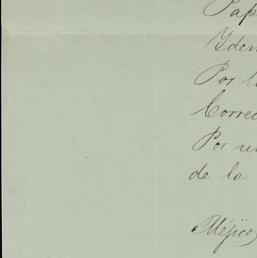 Pap
Yden
Por l
Correo
Por un
de la
Méjico,